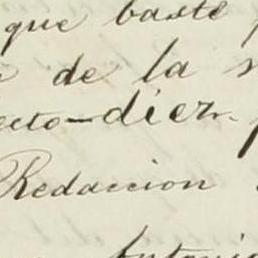 que baste
de la
ecto-diez.
Redaccion
Antonio